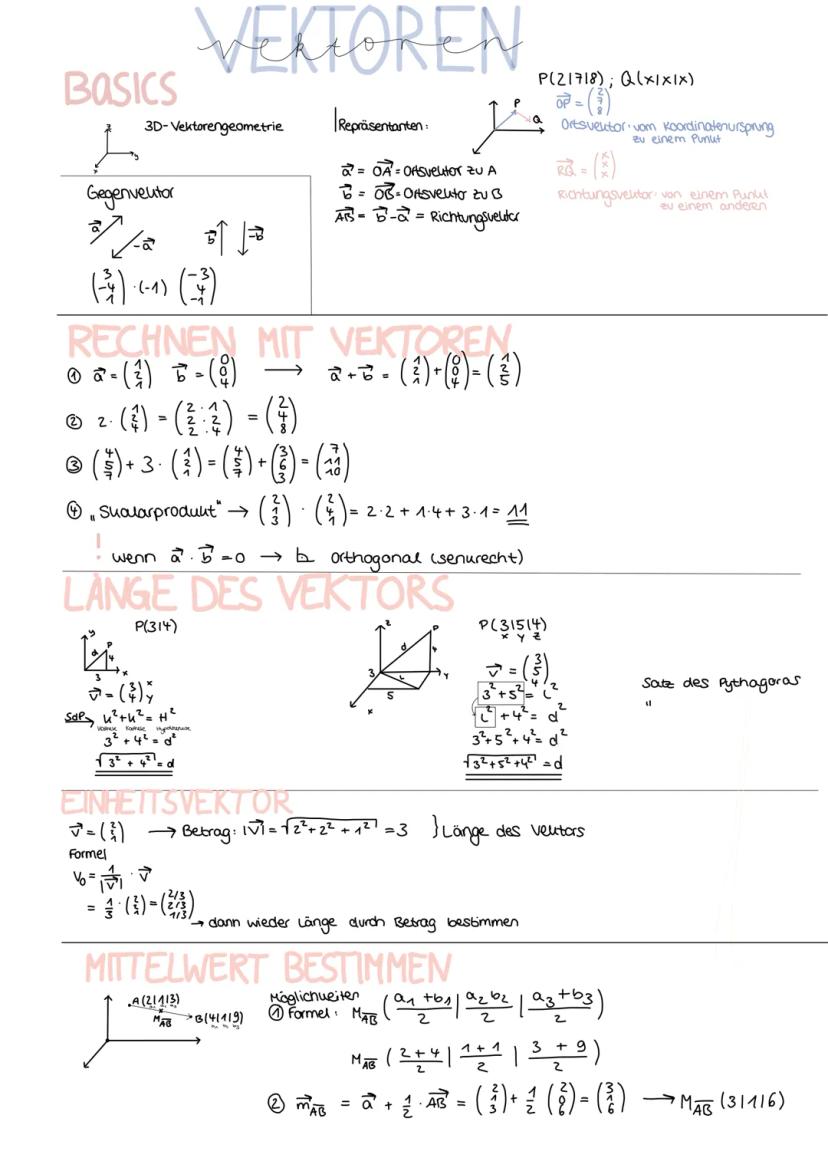 VEKTOREN
vektoren
BASICS
P(2|7|8) ; Q(x|x|x)
3D-Vektorengeometrie
z
y
x
Repräsentanten:
P
Q
OP = (2 7 8)
Ortsvektor: vom Koordinatenursprung
zu einem Punkt
a = OA = Ortsvektor zu A
b = OB = Ortsvektor zu B
AB = b - a = Richtungsvektor
RQ = (x x x)
Richtungsvektor: von einem Punkt
zu einem anderen
Gegenvektor
a
-a
b
-b
(3 -4 1) · (-1) (-3 4 -1)
RECHNEN MIT VEKTOREN
① a = (1 2 1) b = (0 0 4) → a + b = (1 2 1) + (0 0 4) = (1 2 5)
② 2 · (1 2 4) = (2·1 2·2 2·4) = (2 4 8)
③ (4 5 7) + 3 · (1 2 1) = (4 5 7) + (3 6 3) = (7 11 10)
④ „Skalarprodukt" → (2 1 3) · (2 4 1) = 2·2 + 1·4 + 3·1 = 11
! wenn a · b = 0 → orthogonal (senkrecht)
LÄNGE DES VEKTORS
P(3|4)
y
P
d
4
3
x
v = (3 4) x y
SdP K² + K² = H²
Kathete Kathete Hypothenuse
3² + 4² = d²
√3² + 4² = d
z
P
d
4
3
L
y
5
x
P(3|5|4)
x y z
v = (3 5 4)
3² + 5² = L²
L² + 4² = d²
3² + 5² + 4² = d²
√3² + 5² + 4² = d
Satz des Pythagoras
"
EINHEITSVEKTOR
v = (2 2 1) → Betrag: |v| = √2² + 2² + 1² = 3 } Länge des Vektors
Formel
V₀ = 1/|v| · v
= 1/3 · (2 2 1) = (2/3 2/3 1/3)
→ dann wieder Länge durch Betrag bestimmen
MITTELWERT BESTIMMEN
A(2|1|3)
a₁ a₂ a₃
M AB
B(4|1|9)
b₁ b₂ b₃
Möglichkeiten
① Formel: M AB (a₁ + b₁/2 | a₂ b₂/2 | a₃ + b₃/2)
M AB (2 + 4/2 | 1 + 1/2 | 3 + 9/2)
② m AB = a + 1/2 · AB = (2 1 3) + 1/2 (2 0 6) = (3 1 6) → M AB (3|1|6)